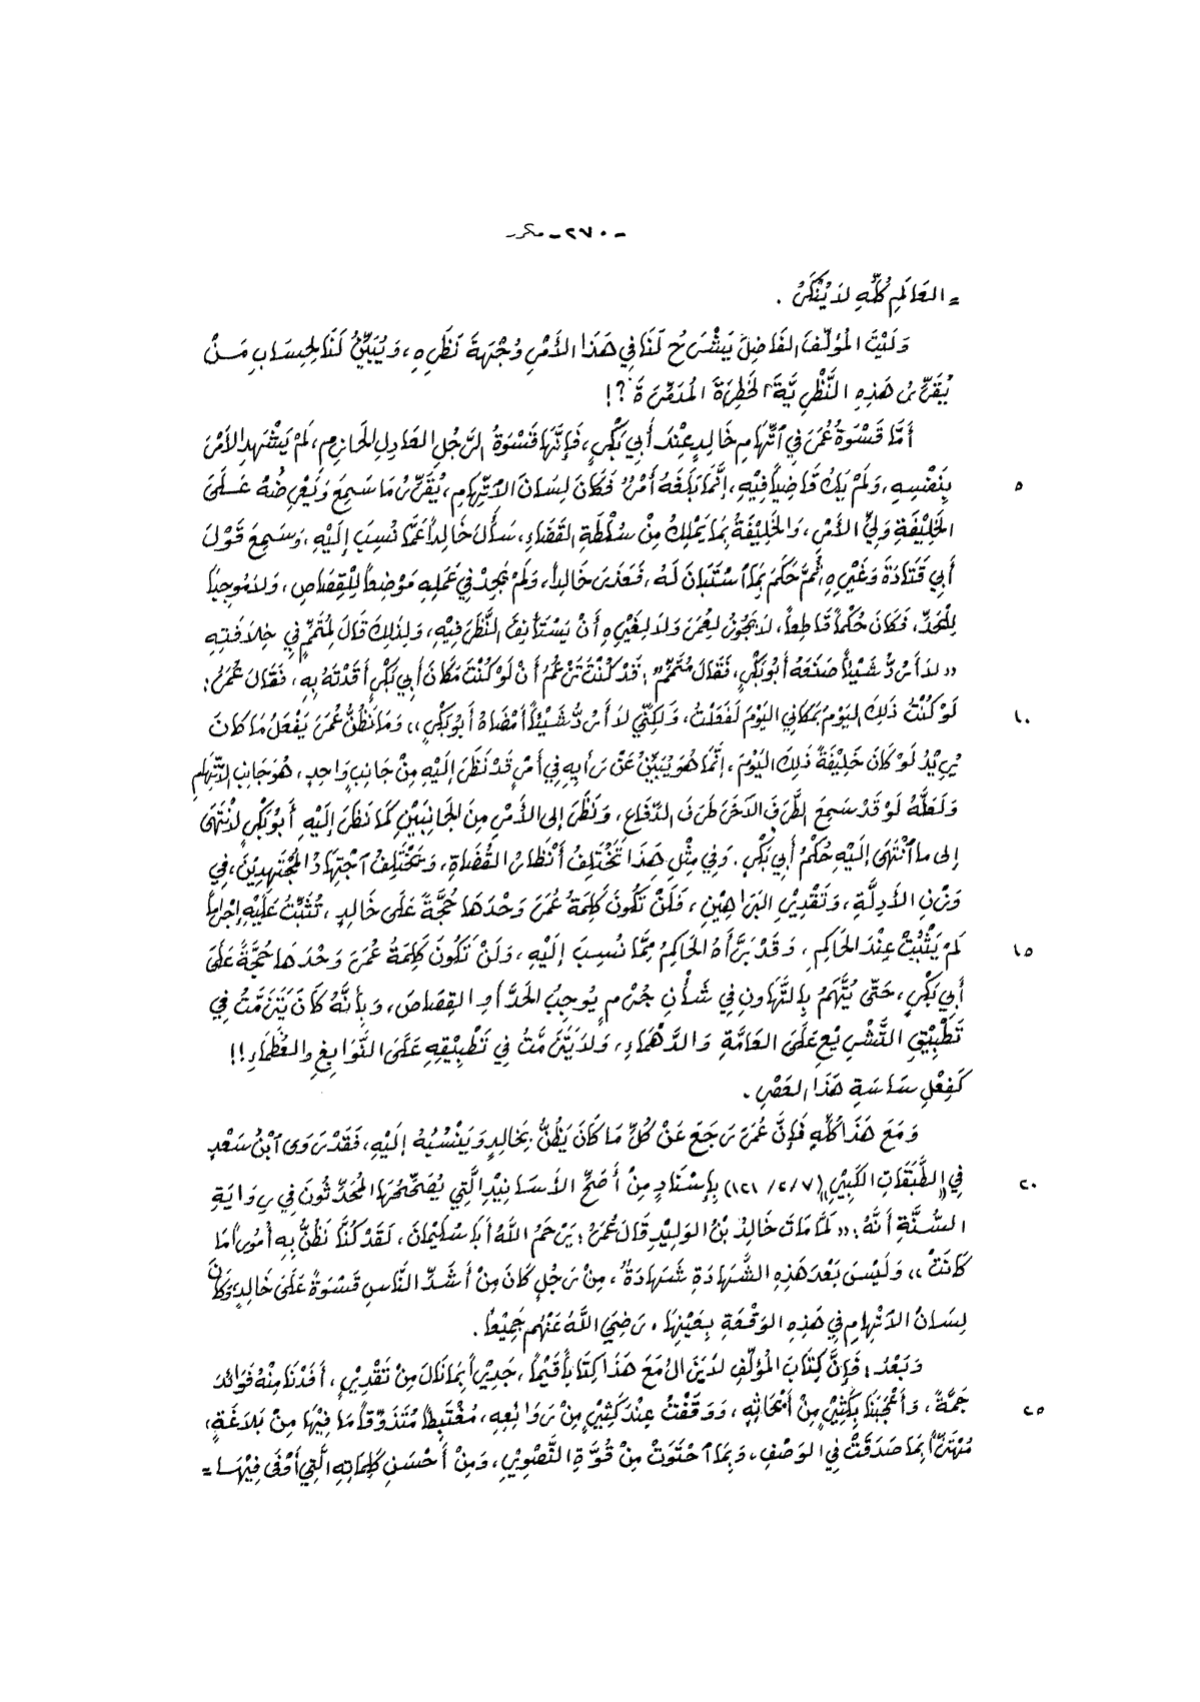 - ٢٧٠ - مكرر
= العَالَمِ كُلِّهِ لَا يُنْكَرُ .
وَلَيْتَ المُؤلِّفَ الفَاضِلَ يَشْرَحُ لَنَا فِي هَذَا الأَمْرِ وُجْهَةَ نَظَرِهِ، وَيُبَيِّنُ لَنَا لِحِسَابِ مَنْ
يُقَرِّرُ هَذِهِ النَّظَرِيَّةَ الخَطِرَةَ المُدَمِّرَةَ ؟!
أَمَّا قَسْوَةُ عُمَرَ فِي اتِّهَامِ خَالِدٍ عِنْدَ أَبِي بَكْرٍ، فَإِنَّهَا قَسْوَةُ الرَّجُلِ العَادِلِ الحَازِمِ، لَمْ يَشْهَدِ الأَمْرَ
٥ بِنَفْسِهِ، وَلَمْ يَكُ قَاضِياً فِيْهِ، إِنَّمَا بَلَغَهُ أَمْرٌ فَكَانَ لِسَانَ الاتِّهَامِ، يُقَرِّرُ مَا سَمِعَ وَيَعْرِضُهُ عَلَى
الخَلِيْفَةِ وَلِيِّ الأَمْرِ، وَالخَلِيْفَةُ بِمَا يَمْلِكُ مِنْ سُلْطَةِ القَضَاءِ، سَأَلَ خَالِداً عَمَّا نُسِبَ إِلَيْهِ، وَسَمِعَ قَوْلَ
أَبِي قَتَادَةَ وَغَيْرِهِ، ثُمَّ حَكَمَ بِمَا اسْتَبَانَ لَهُ، فَعَذَرَ خَالِداً، وَلَمْ يَجِدْ فِي عَمَلِهِ مَوْضِعاً لِلْقِصَاصِ، وَلَا مُوجِباً
لِلْحَدِّ، فَكَانَ حُكْماً قَاطِعاً، لَا يَجُوْزُ لِعُمَرَ وَلَا لِغَيْرِهِ أَنْ يَسْتَأْنِفَ النَّظَرَ فِيْهِ، وَلِذَلِكَ قَالَ لِمُتَمِّمٍ فِي خِلَافَتِهِ
« لَا أَرُدُّ شَيْئاً صَنَعَهُ أَبُو بَكْرٍ، فَقَالَ مُتَمِّمٌ : قَدْ كُنْتَ تَزْعُمُ أَنْ لَوْ كُنْتَ مَكَانَ أَبِي بَكْرٍ أَقَدْتَهُ بِهِ، فَقَالَ عُمَرُ :
١٠ لَوْ كُنْتُ ذَلِكَ اليَوْمَ بِمَكَانِي اليَوْمَ لَفَعَلْتُ، وَلَكِنِّي لَا أَرُدُّ شَيْئاً أَمْضَاهُ أَبُو بَكْرٍ »، وَمَا نَظُنُّ عُمَرَ يَفْعَلُ مَا كَانَ
يُرِيْدُ لَوْ كَانَ خَلِيْفَةً ذَلِكَ اليَوْمَ، إِنَّمَا هُوَ يُبَيِّنُ عَنْ رَأيِهِ فِي أَمْرٍ قَدْ نَظَرَ إِلَيْهِ مِنْ جَانِبٍ وَاحِدٍ، هُوَ جَانِبُ الاتِّهَامِ
وَلَعَلَّهُ لَوْ قَدْ سَمِعَ الطَّرَفَ الآخَرَ طَرَفَ الدِّفَاعِ، وَنَظَرَ إِلَى الأَمْرِ مِنَ الجَانِبَيْنِ كَمَا نَظَرَ إِلَيْهِ أَبُو بَكْرٍ لانْتَهَى
إِلى ما انْتَهَى إِلَيْهِ حُكْمُ أَبِي بَكْرٍ. وَفِي مِثْلِ هَذَا تَخْتَلِفُ أَنْظَارُ القُضَاةِ، وَيَخْتَلِفُ اجْتِهَادُ المُجْتَهِدِيْنَ، فِي
وَزْنِ الأَدِلَّةِ، وَتَقْدِيْرِ البَرَاهِيْنِ، فَلَنْ تَكُونَ كَلِمَةُ عُمَرَ وَحْدَهَا حُجَّةً عَلَى خَالِدٍ، تُثَبِّتُ عَلَيْهِ إِجْرَاماً
١٥ لَمْ يَثْبُتْ عِنْدَ الحَاكِمِ، وَقَدْ بَرَّأَهُ الحَاكِمُ مِمَّا نُسِبَ إِلَيْهِ، وَلَنْ تَكُونَ كَلِمَةُ عُمَرَ وَحْدَهَا حُجَّةً عَلَى
أَبِي بَكْرٍ، حَتَّى يُتَّهَمُ بِالتَّهَاونِ فِي شَأْنِ جُرْمٍ يُوجِبُ الحَدَّ أو القِصَاصَ، وَبِأَنَّهُ كَانَ يَتَزَمَّتُ فِي
تَطْبِيْقِ التَّشْرِيْعِ عَلَى العَامَّةِ وَالدَّهْمَاءِ، وَلَا يَتَزَمَّتُ فِي تَطْبِيْقِهِ عَلَى النَّوَابِغِ والعُظَمَاءِ !!
كَفِعْلِ سَاسَةِ هَذَا العَصْرِ .
وَمَعَ هَذَا كُلِّهِ فَإِنَّ عُمَرَ رَجَعَ عَنْ كُلِّ مَا كَانَ يَظُنُّ بِخَالِدٍ وَيَنْسُبُهُ إِلَيْهِ، فَقَدْ رَوَى ابْنُ سَعْدٍ
٢٠ فِي «الطَّبَقَاتِ الكَبِيْرِ» (١٢١/٢/٧) بِإِسْنَادٍ مِنْ أَصَحِّ الأَسَانِيْدِ الَّتِي يُصَحِّحُهَا المُحَدِّثُونَ فِي رِوَايَةِ
السُّنَّةِ أَنَّهُ : « لَمَّا مَاتَ خَالِدُ بْنُ الوَلِيْدِ قَالَ عُمَرُ : يَرْحَمُ اللَّهُ أَبَا سُلَيْمَانَ، لَقَدْ كُنَّا نَظُنُّ بِهِ أُمُوراً مَا
كَانَتْ »، وَلَيْسَ بَعْدَ هَذِهِ الشَّهَادَةِ شَهَادَةٌ، مِنْ رَجُلٍ كَانَ مِنْ أَشَدِّ النَّاسِ قَسْوَةً عَلَى خَالِدٍ، وَكَانَ
لِسَانُ الاتِّهَامِ فِي هَذِهِ الوَقْعَةِ بِعَيْنِهَا، رَضِيَ اللَّهُ عَنْهُم جَمِيْعاً .
وَبَعْدُ : فَإِنَّ كِتَابَ المُؤلِّفِ لَا يَزَالُ مَعَ هَذَا كِتَاباً قَيِّماً، جَدِيْراً بِمَا نَالَ مِنْ تَقْدِيْرٍ، أَفَدْنَا مِنْهُ فَوَائِدَ
٢٥ جَمَّةً، وَأُعْجِبْنَا بِكَثِيْرٍ مِنْ أَبْحَاثِهِ، وَوَقَفْتُ عِنْدَ كَثِيْرٍ مِنْ رَوَائِعِهِ، مُغْتَبِطاً مُتَذَوِّقاً مَا فِيْهَا مِنْ بَلَاغَةٍ،
مُهْتَزّاً بِمَا صَدَقَتْ فِي الوَصْفِ، وَبِمَا احْتَوَتْ مِنْ قُوَّةِ التَّصْوِيْرِ، وَمِنْ أَحْسَنِ كَلِمَاتِهِ الَّتِي أَوْفَى فِيْهَا =